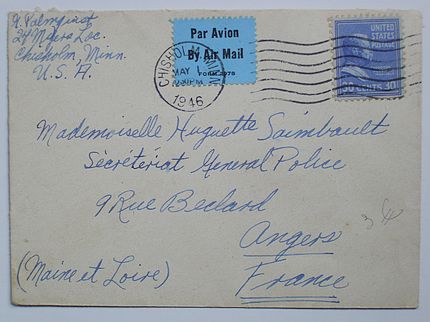 G. Palmquist
24 Myers Loc.
Chisholm, Minn.
U. S. A.
Par Avion
By Air Mail
FORM 2978
CHISHOLM MINN.
MAY 1
1946
UNITED STATES
POSTAGE
30 CENTS 30
Mademoiselle Huguette Saimbault
Sécrétériat General Police
9 Rue Beclard
Angers
(Maine et Loire)
France